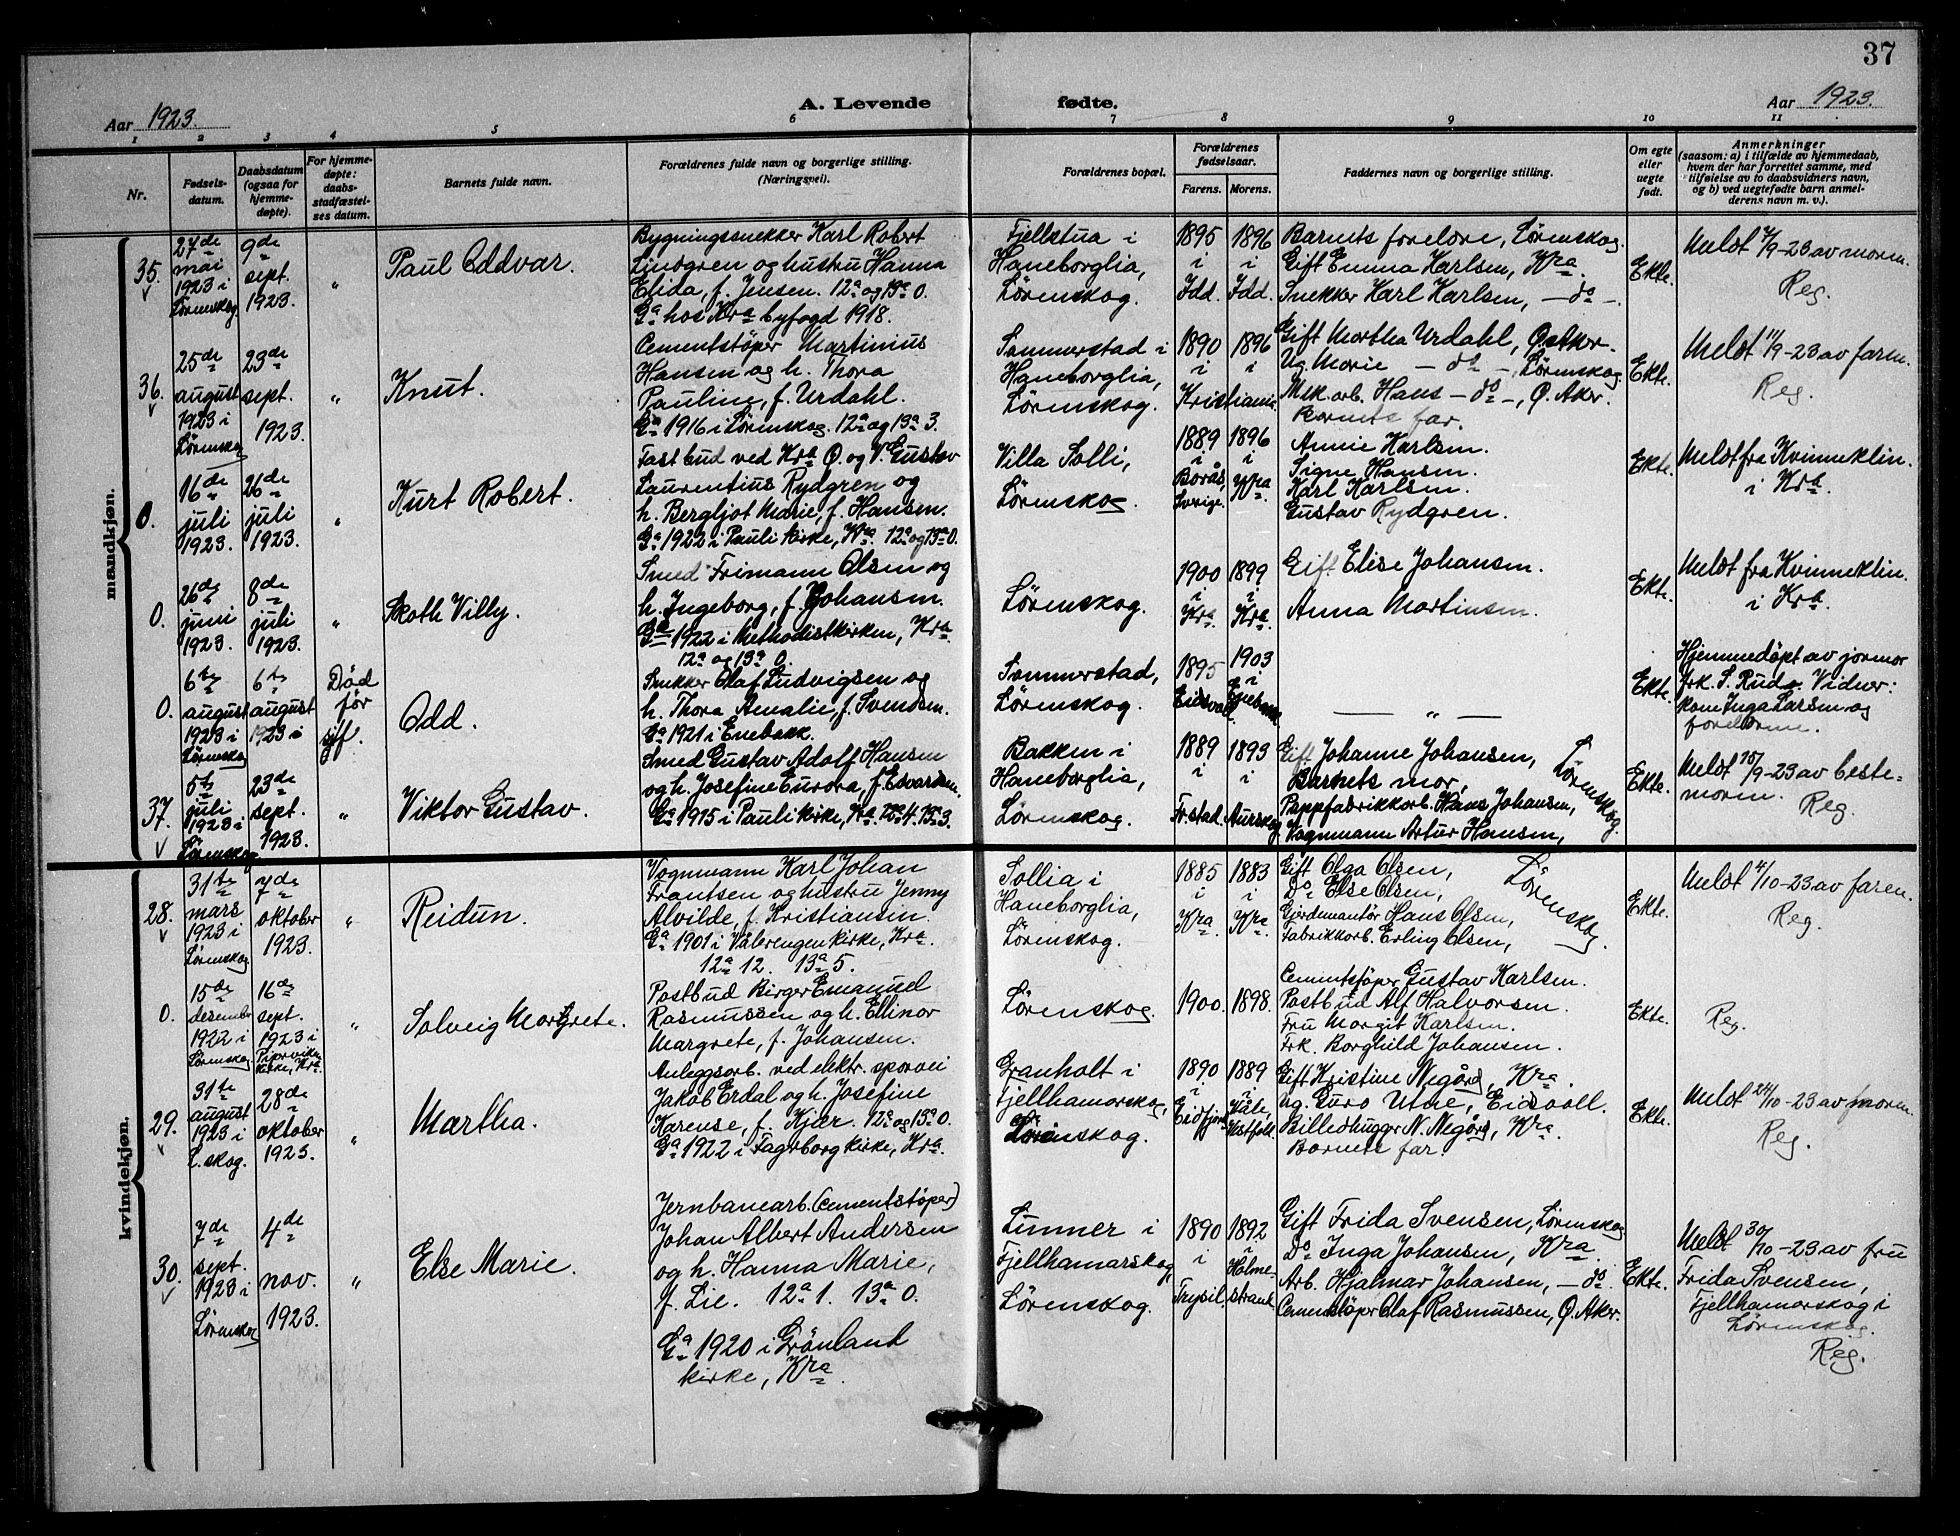 37
Aar 1923.
A. Levende fødte.
Aar 1923.
1 2 3 4 5 6 7 8 9 10 11
Nr.
Fødsels-
datum.
Daabsdatum
(ogsaa for
hjemme-
døpte).
For hjemme-
døpte:
daabs-
stadfæstel-
ses datum.
Barnets fulde navn.
Forældrenes fulde navn og borgerlige stilling.
(Næringsvei).
Forældrenes bopæl.
Forældrenes
fødselsaar.
Farens. Morens.
Faddernes navn og borgerlige stilling.
Om egte
eller
uegte
født.
Anmerkninger
(saasom: a) i tilfælde av hjemmedaab,
hvem der har forrettet samme, med
tilføielse av to daabsvidners navn,
og b) ved uegtefødte barn anmel-
derens navn m. v.).
mandkjøn.
35.
27de
mai
1923 i
Lørenskog
9de
sept.
1923.
"
Paul Oddvar.
Bygningssnekker Karl Robert
Lindgren og hustru Hanna
Elida, f. Jensen. 12a og 13a 0.
Ga hos Kra byfogd 1918.
Fjellstua i
Haneborglia,
Lørenskog.
1895
i
Idd.
1896
i
Idd.
Barnets foreldre, Lørenskog.
Gift Emma Karlsen, Kra.
Snekker Karl Karlsen, — do —.
Ekte.
Meldt 7/9-23 av moren.
Reg.
36.
25de
august
1923 i
Lørenskog
23de
sept.
1923.
"
Knut.
Cementstøper Martinius
Hansen og h. Thora
Pauline, f. Urdahl.
Ga 1916 i Lørenskog. 12a og 13a 3.
Sommerstad i
Haneborglia,
Lørenskog.
1890 1896
i i
Kristiania
Gift Martha Urdahl, Ø. Aker.
Ug. Marie — do —, Lørenskog.
Msk. arb. Hans — do —, Ø. Aker.
Barnets far.
Ekte.
Meldt 11/9-23 av faren.
Reg.
0.
16de
juli
1923.
26de
juli
1923.
"
Kurt Robert.
Fast bud ved Kra Ø. og V. Gustav
Laurentius Rydgren og
h. Bergljot Marie, f. Hansen.
Ga 1922 i Pauli kirke, Kra. 12a og 13a 0.
Villa Solli,
Lørenskog.
1889
i
Borås,
Sverige.
1896
i
Kra.
Annie Karlsen.
Signe Hansen.
Karl Karlsen.
Gustav Rydgren.
Ekte.
Meldt fra Kvinneklin.
i Kra.
0.
26de
juni
1923.
8de
juli
1923.
"
Skoth Villy.
Smed Frimann Olsen og
h. Ingeborg, f. Johansen.
Ga 1922 i Methodistkirken, Kra.
12a og 13a 0.
Lørenskog.
1900
i
Kra.
1899
i
Kra.
Gift Elise Johansen.
Anna Martinsen.
Ekte.
Meldt fra Kvinneklin.
i Kra.
0.
6te
august
1923 i
Lørenskog
6te
august
1923 i
Død
før
stf.
Odd.
Snekker Olaf Ludvigsen og
h. Thora Amalie, f. Svendsen.
Ga 1921 i Enebakk.
Sommerstad,
Lørenskog.
1895
i
Eidsvoll
1903
i
Enebakk
— " —
Ekte.
Hjemmedøpt av jormor
frk. S. Rudo. Vidner:
kone Inga Larsen og
foreldrene.
37.
5te
juli
1923 i
Lørenskog
23de
sept.
1923.
"
Viktor Gustav.
Smed Gustav Adolf Hansen
og h. Josefine Eurora, f. Edvardsen.
Ga 1915 i Pauli kirke, Kra. 12a 4. 13a 3.
Bakken i
Haneborglia,
Lørenskog.
1889
i
Fr.stad.
1893
i
Aurskog
Gift Johanne Johansen,
Barnets mor,
Pappfabrikkarb. Hans Johansen,
Vognmann Artur Hansen,
Lørenskog.
Ekte.
Meldt 15/9-23 av beste-
moren.
Reg.
kvindekjøn.
28.
31te
mars
1923 i
Lørenskog
7de
oktober
1923.
"
Reidun.
Vognmann Karl Johan
Frantsen og hustru Jenny
Alvilde, f. Kristiansen.
Ga 1901 i Vålerengen kirke, Kra.
12a 12. 13a 5.
Sollia i
Haneborglia,
Lørenskog.
1885
i
Kra.
1883
i
Kra.
Gift Olga Olsen,
Do Else Olsen,
Gjørdemantør Hans Olsen,
Fabrikkarb. Erling Olsen,
Lørenskog.
Ekte.
Meldt 4/10-23 av faren.
Reg.
0.
15de
desember
1922 i
Lørenskog
16de
sept.
1923 i
Pipervikens
kirke, Kra.
"
Solveig Margrete.
Postbud Birger Emanuel
Rasmussen og h. Ellinor
Margrete, f. Johansen.
Lørenskog.
1900. 1898.
Cementstøper Gustav Karlsen.
Postbud Alf Halvorsen.
Fru Margit Karlsen.
Frk. Borghild Johansen.
Ekte.
Reg.
29.
31te
august
1923 i
L.skog.
28de
oktober
1923.
"
Martha.
Anleggsarb. ved elektr. sporvei
Jakob Erdal og h. Josefine
Karense, f. Kjær. 12a og 13a 0.
Ga 1922 i Fagerborg kirke, Kra.
Granholt i
Fjellhamarskog,
Lørenskog.
1890
i
Eidfjord
1889
i
Våle,
Vestfold.
Gift Kristine Negård, Kra.
Ug. Guro Utne, Eidsvoll.
Billedhugger N. Negård, Kra.
Barnets far.
Ekte.
Meldt 24/10-23 av moren.
Reg.
30.
7de
sept.
1923 i
Lørenskog
4de
nov.
1923.
"
Else Marie.
Jernbanearb. (cementstøper)
Johan Albert Andersen
og h. Hanna Marie,
f. Lie. 12a 1. 13a 0.
Ga 1920 i Grønland
kirke, Kra.
Lunner i
Fjellhamarskog,
Lørenskog.
1890
i
Trysil.
1892
i
Holme-
strand.
Gift Frida Svensen, Lørenskog
Do Inga Johansen, Kra.
Arb. Hjalmar Johansen, — do
Cementstøper Olaf Rasmussen, Ø. Aker.
Ekte.
Meldt 30/10-23 av fru
Frida Svensen,
Fjellhamarskog i
Lørenskog.
Reg.